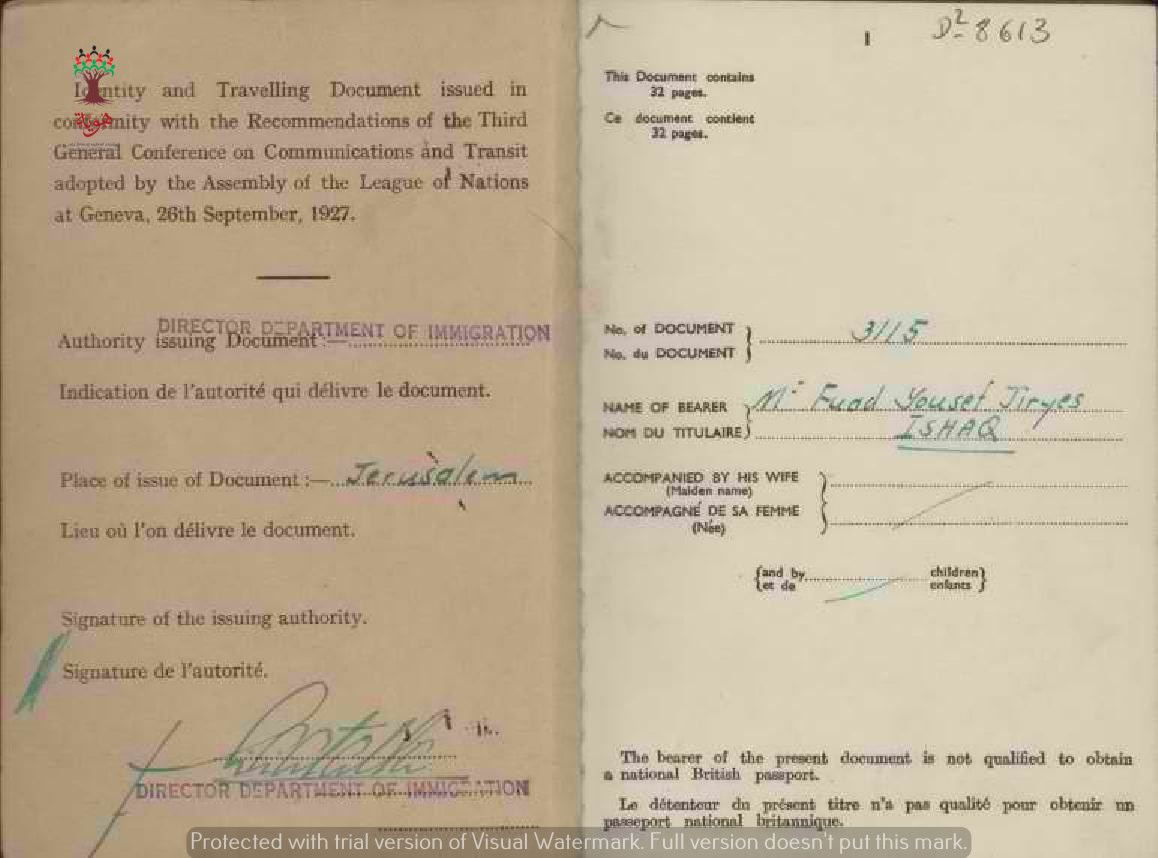 Identity and Travelling Document issued in
conformity with the Recommendations of the Third
General Conference on Communications and Transit
adopted by the Assembly of the League of Nations
at Geneva, 26th September, 1927.
DIRECTOR DEPARTMENT OF IMMIGRATION
Authority issuing Document :—
Indication de l'autorité qui délivre le document.
Place of issue of Document :— Jerusalem
Lieu où l'on délivre le document.
Signature of the issuing authority.
Signature de l'autorité.
DIRECTOR DEPARTMENT OF IMMIGRATION
هوية
1
D2 8613
This Document contains
32 pages.
Ce document contient
32 pages.
No. of DOCUMENT
No. du DOCUMENT
3115
NAME OF BEARER Mr Fuad Yousef Jiryes
NOM DU TITULAIRE ISHAQ
ACCOMPANIED BY HIS WIFE
(Maiden name)
ACCOMPAGNÉ DE SA FEMME
(Née)
and by children
et de enfants
The bearer of the present document is not qualified to obtain
a national British passport.
Le détenteur du présent titre n'a pas qualité pour obtenir un
passeport national britannique.
Protected with trial version of Visual Watermark. Full version doesn't put this mark.